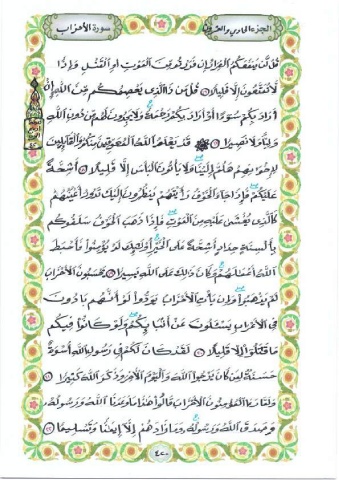 الجزء الحادي والعشرون
سورة الأحزاب
قل لن ينفعكم الفرار إن فررتم من الموت أو القتل وإذا
لا تمتعون إلا قليلا ١٦ قل من ذا الذي يعصمكم من الله إن
أراد بكم سوءا أو أراد بكم رحمة ولا يجدون لهم من دون الله
وليا ولا نصيرا ١٧ قد يعلم الله المعوقين منكم والقائلين
لإخوانهم هلم إلينا ولا يأتون البأس إلا قليلا ١٨ أشحة
عليكم فإذا جاء الخوف رأيتهم ينظرون إليك تدور أعينهم
كالذي يغشى عليه من الموت فإذا ذهب الخوف سلقوكم
بألسنة حداد أشحة على الخير أولئك لم يؤمنوا فأحبط
الله أعمالهم وكان ذلك على الله يسيرا ١٩ يحسبون الأحزاب
لم يذهبوا وإن يأت الأحزاب يودوا لو أنهم بادون
في الأعراب يسئلون عن أنبائكم ولو كانوا فيكم
ما قاتلوا إلا قليلا ٢٠ لقد كان لكم في رسول الله أسوة
حسنة لمن كان يرجوا الله واليوم الآخر وذكر الله كثيرا ٢١
ولما رءا المؤمنون الأحزاب قالوا هذا ما وعدنا الله ورسوله
وصدق الله ورسوله وما زادهم إلا إيمانا وتسليما ٢٢
٤٢٠